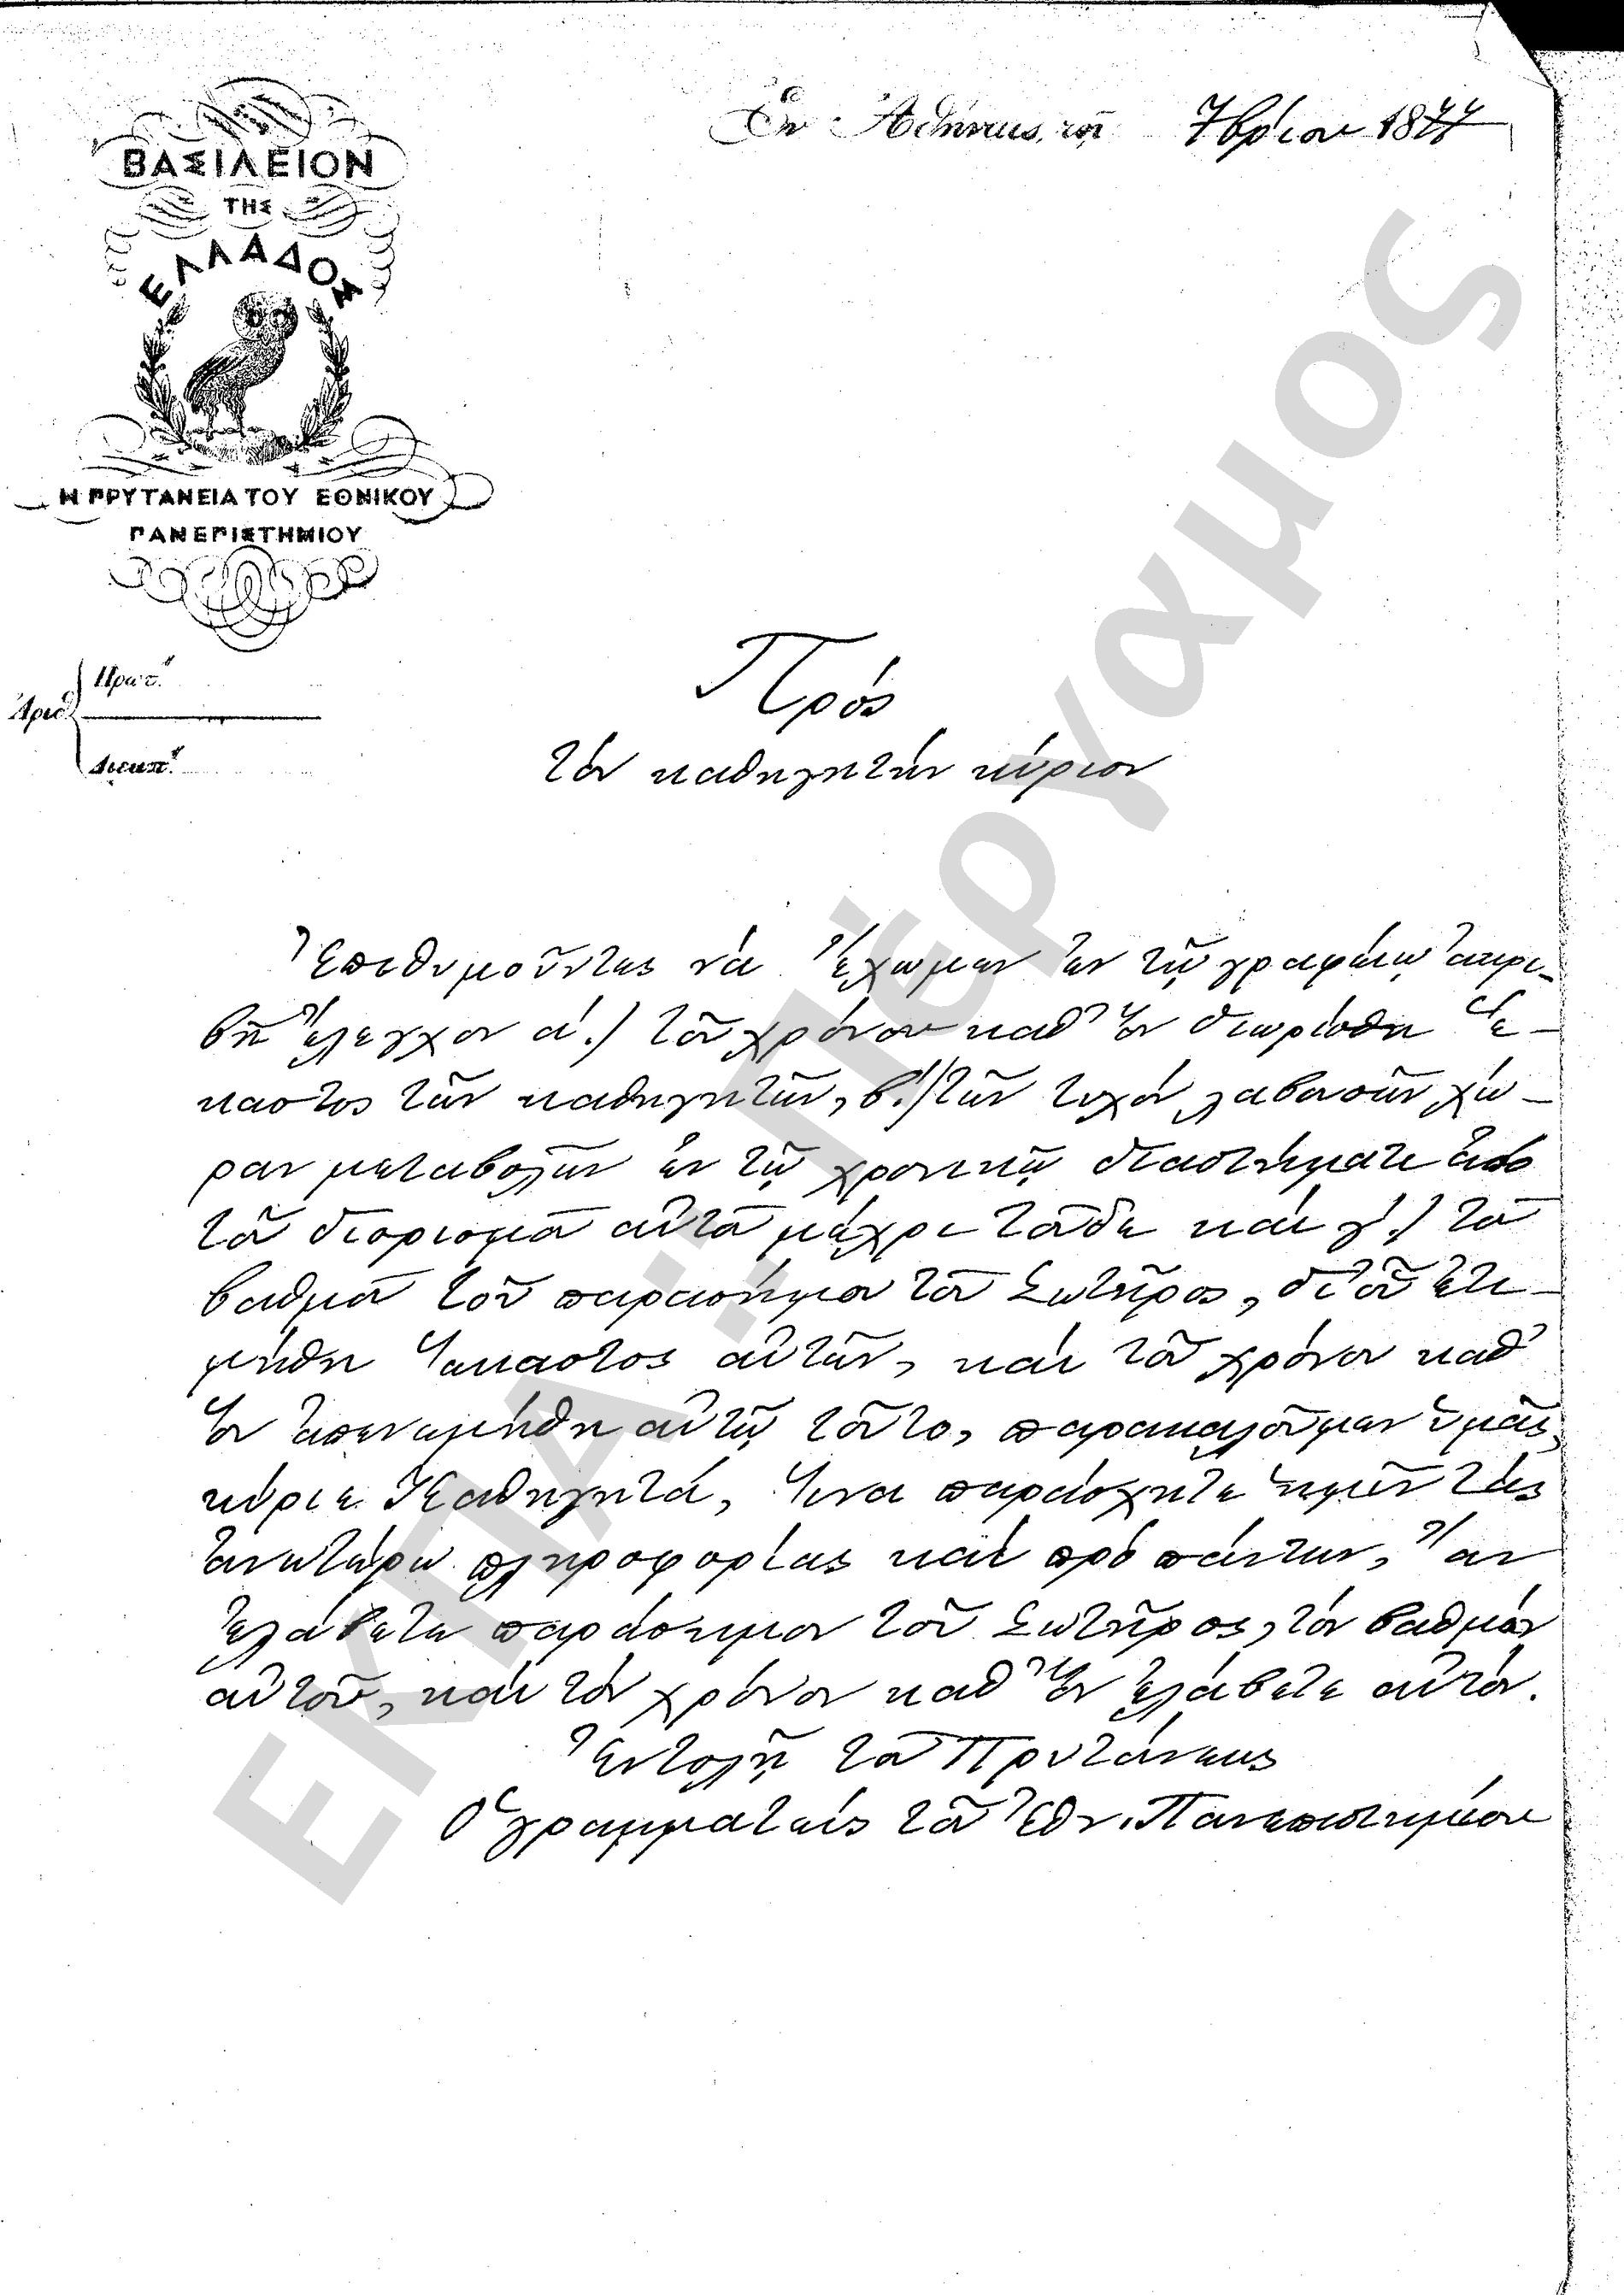 Ἐν Ἀθήναις, τῇ 7βρίου 1877
ΒΑΣΙΛΕΙΟΝ
ΤΗΣ
ΕΛΛΑΔΟΣ
Η ΠΡΥΤΑΝΕΙΑ ΤΟΥ ΕΘΝΙΚΟΥ
ΠΑΝΕΠΙΣΤΗΜΙΟΥ
Ἀριθ.
Πρωτ.
Διεκπ.
Πρὸς
τὸν καθηγητὴν κύριον
Ἐπιθυμοῦντες νὰ ἔχωμεν ἐν τῷ γραφείῳ ἀκρι-
βῆ ἔλεγχον α΄.) τοῦ χρόνου καθ' ὃν διωρίσθη ἕ-
καστος τῶν καθηγητῶν, β΄.) τῶν τυχὸν λαβουσῶν χώ-
ραν μεταβολῶν ἐν τῷ χρονικῷ διαστήματι ἀπὸ
τοῦ διορισμοῦ αὐτοῦ μέχρι τοῦδε καὶ γ΄.) τοῦ
βαθμοῦ τοῦ παρασήμου τοῦ Σωτῆρος, δι' οὗ ἐτι-
μήθη ἕκαστος αὐτῶν, καὶ τοῦ χρόνου καθ'
ὃν ἀπενεμήθη αὐτῷ τοῦτο, παρακαλοῦμεν ὑμᾶς,
κύριε Καθηγητά, ἵνα παράσχητε ἡμῖν τὰς
ἀνωτέρω πληροφορίας καὶ πρὸ πάντων, ἂν
ἐλάβετε παράσημον τοῦ Σωτῆρος, τὸν βαθμὸν
αὐτοῦ, καὶ τὸν χρόνον καθ' ὃν ἐλάβετε αὐτόν.
Ἐντολῇ τοῦ Πρυτάνεως
Ὁ γραμματεὺς τοῦ Ἐθν. Πανεπιστημίου
ΕΚΠΑ: Πέργαμος